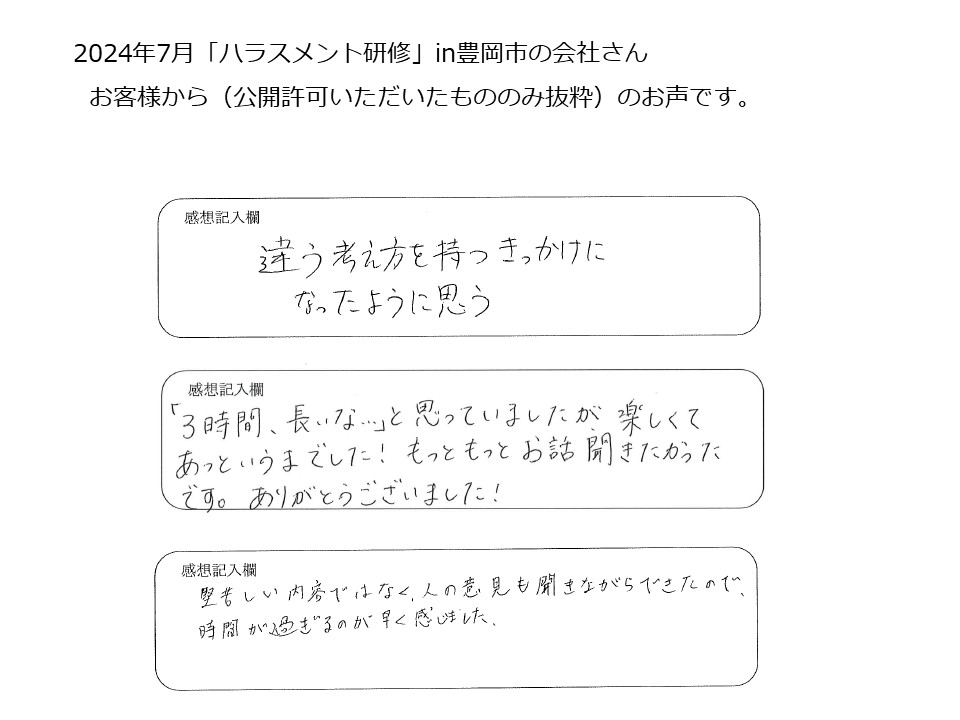 2024年7月「ハラスメント研修」in豊岡市の会社さん
お客様から（公開許可いただいたもののみ抜粋）のお声です。
感想記入欄
違う考え方を持つきっかけに
なったように思う
感想記入欄
「3時間、長いな…」と思っていましたが、楽しくて
あっというまでした！もっともっとお話聞きたかった
です。ありがとうございました！
感想記入欄
堅苦しい内容ではなく、人の意見も聞きながらできたので、
時間が過ぎるのが早く感じました。